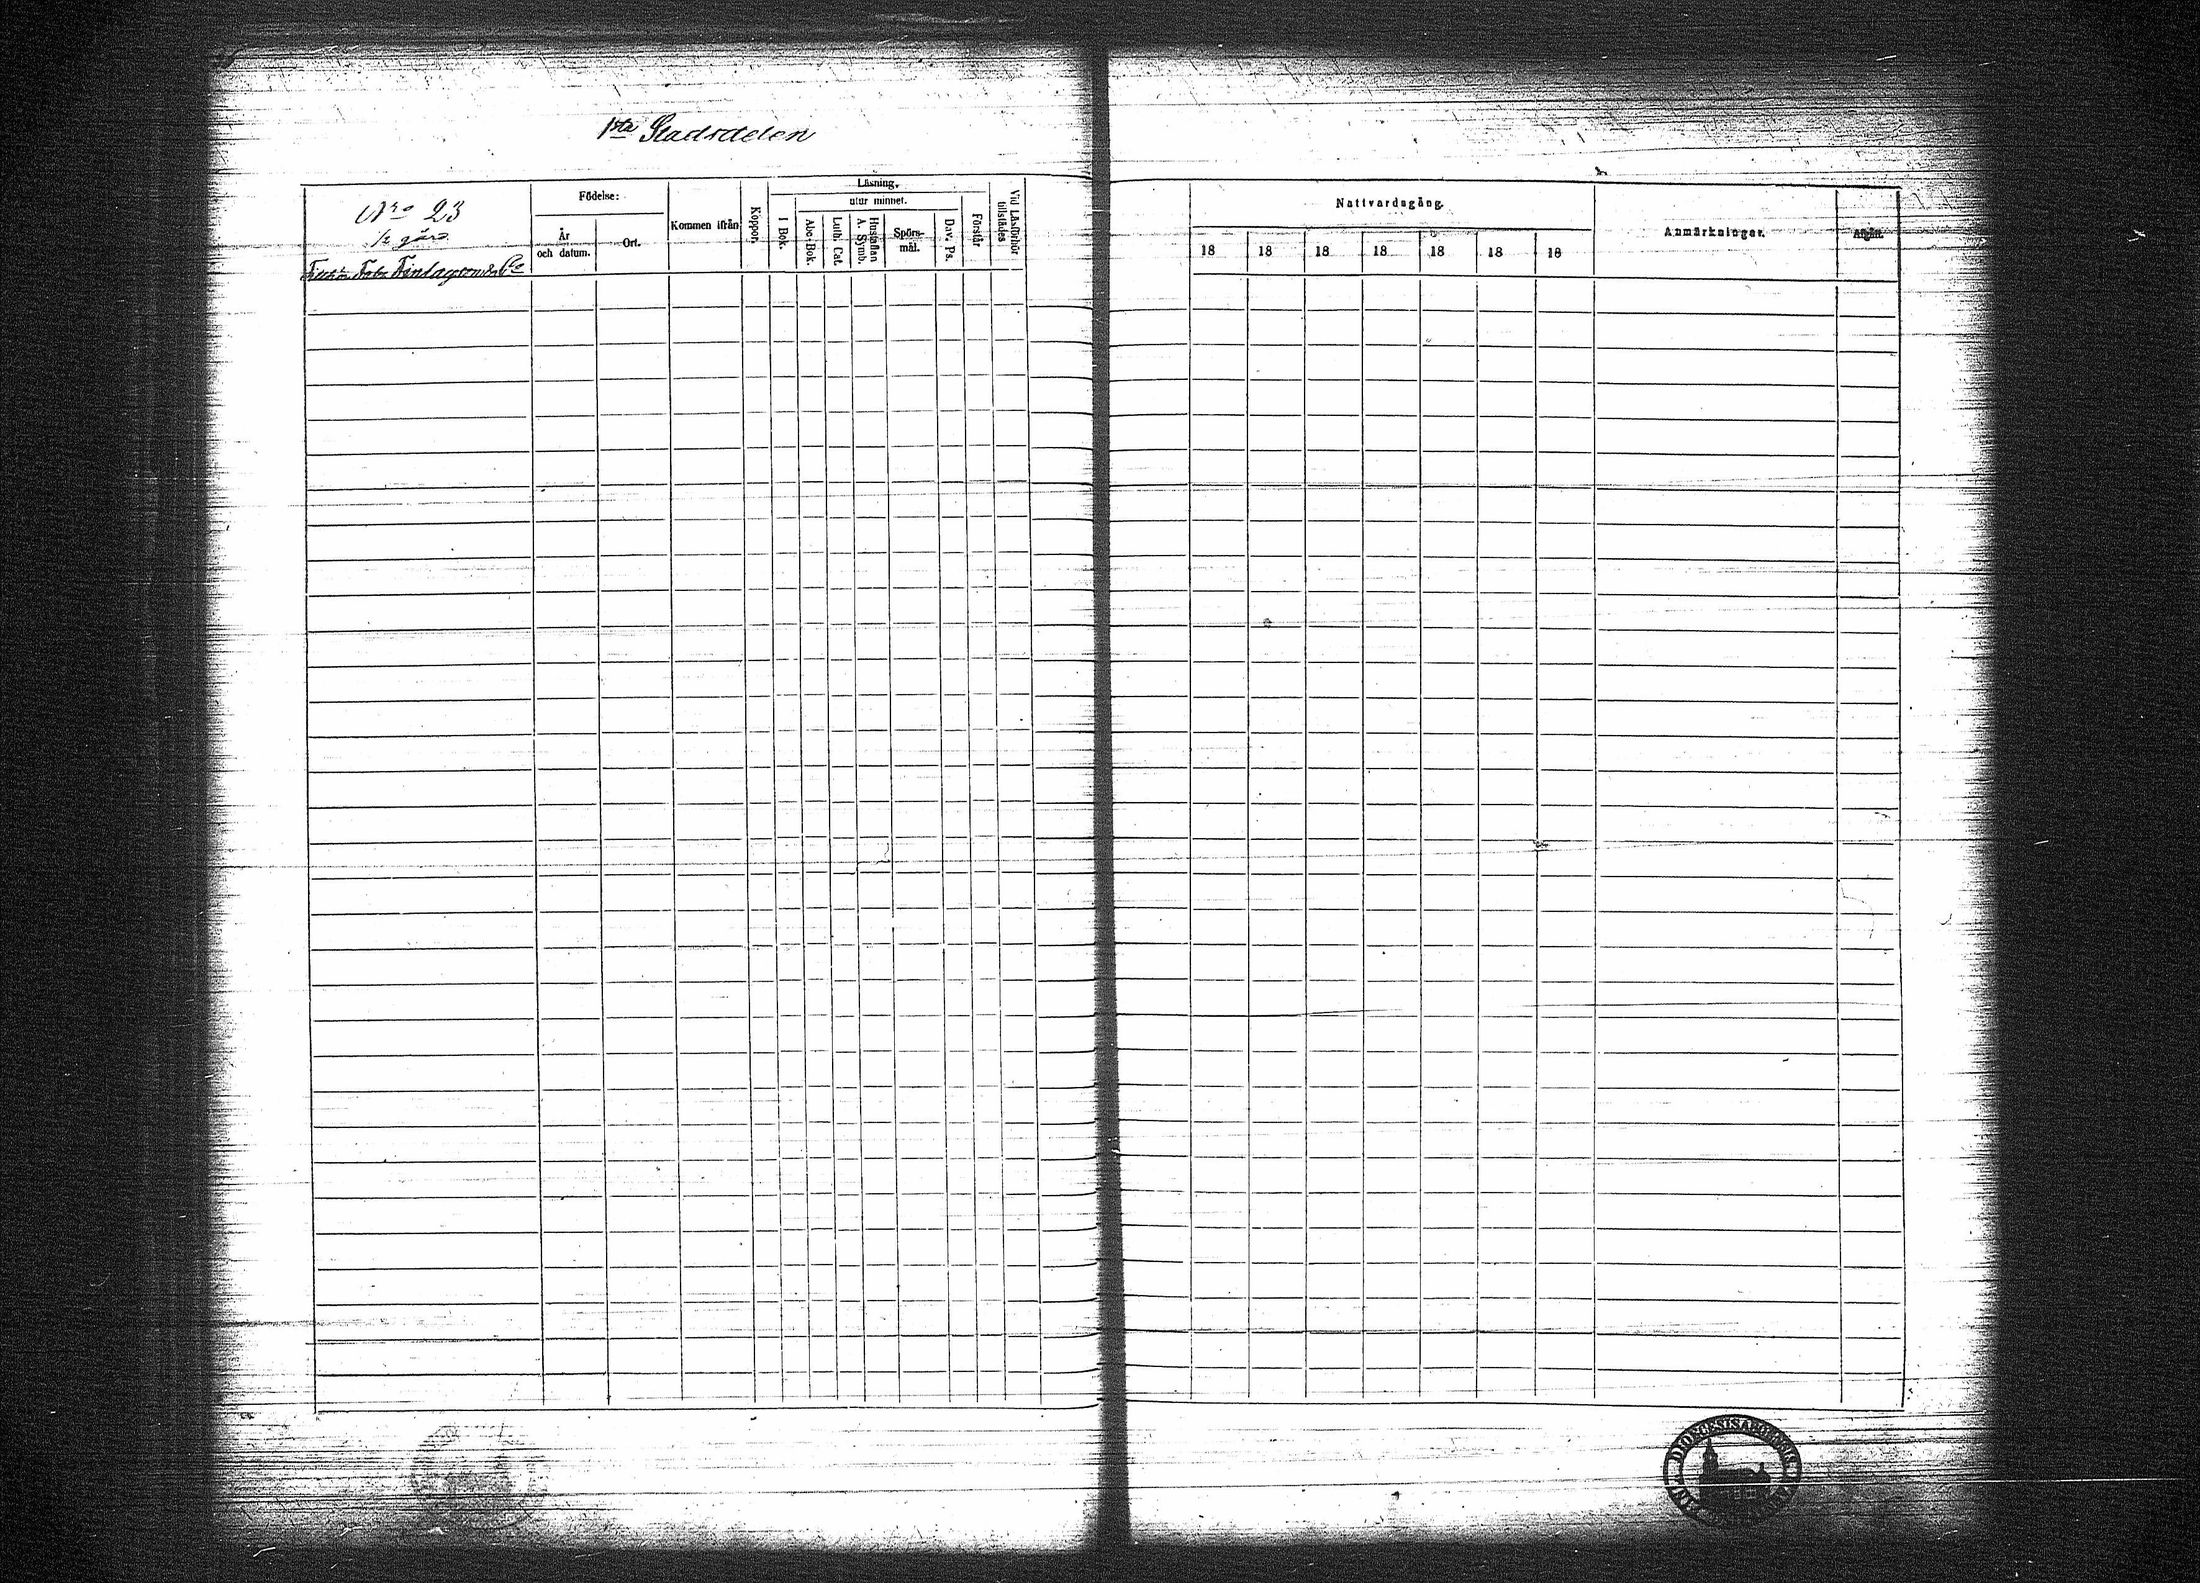 1sta Stadsdelen
Nro 23
1/2 gård
Finlayson & Co
Födelse:
År och datum.
Ort.
Kommen ifrån
Koppor.
Läsning.
utur minnet.
I Bok.
Abc-Bok.
Luth. Cat.
Hustaflan A. Symb.
Spörs-mål.
Dav. Ps.
Förstår
Vid Läsförhör tillstädes
Nattvardsgång.
18 18 18 18 18 18 18
Anmärkningar.
Afgått.